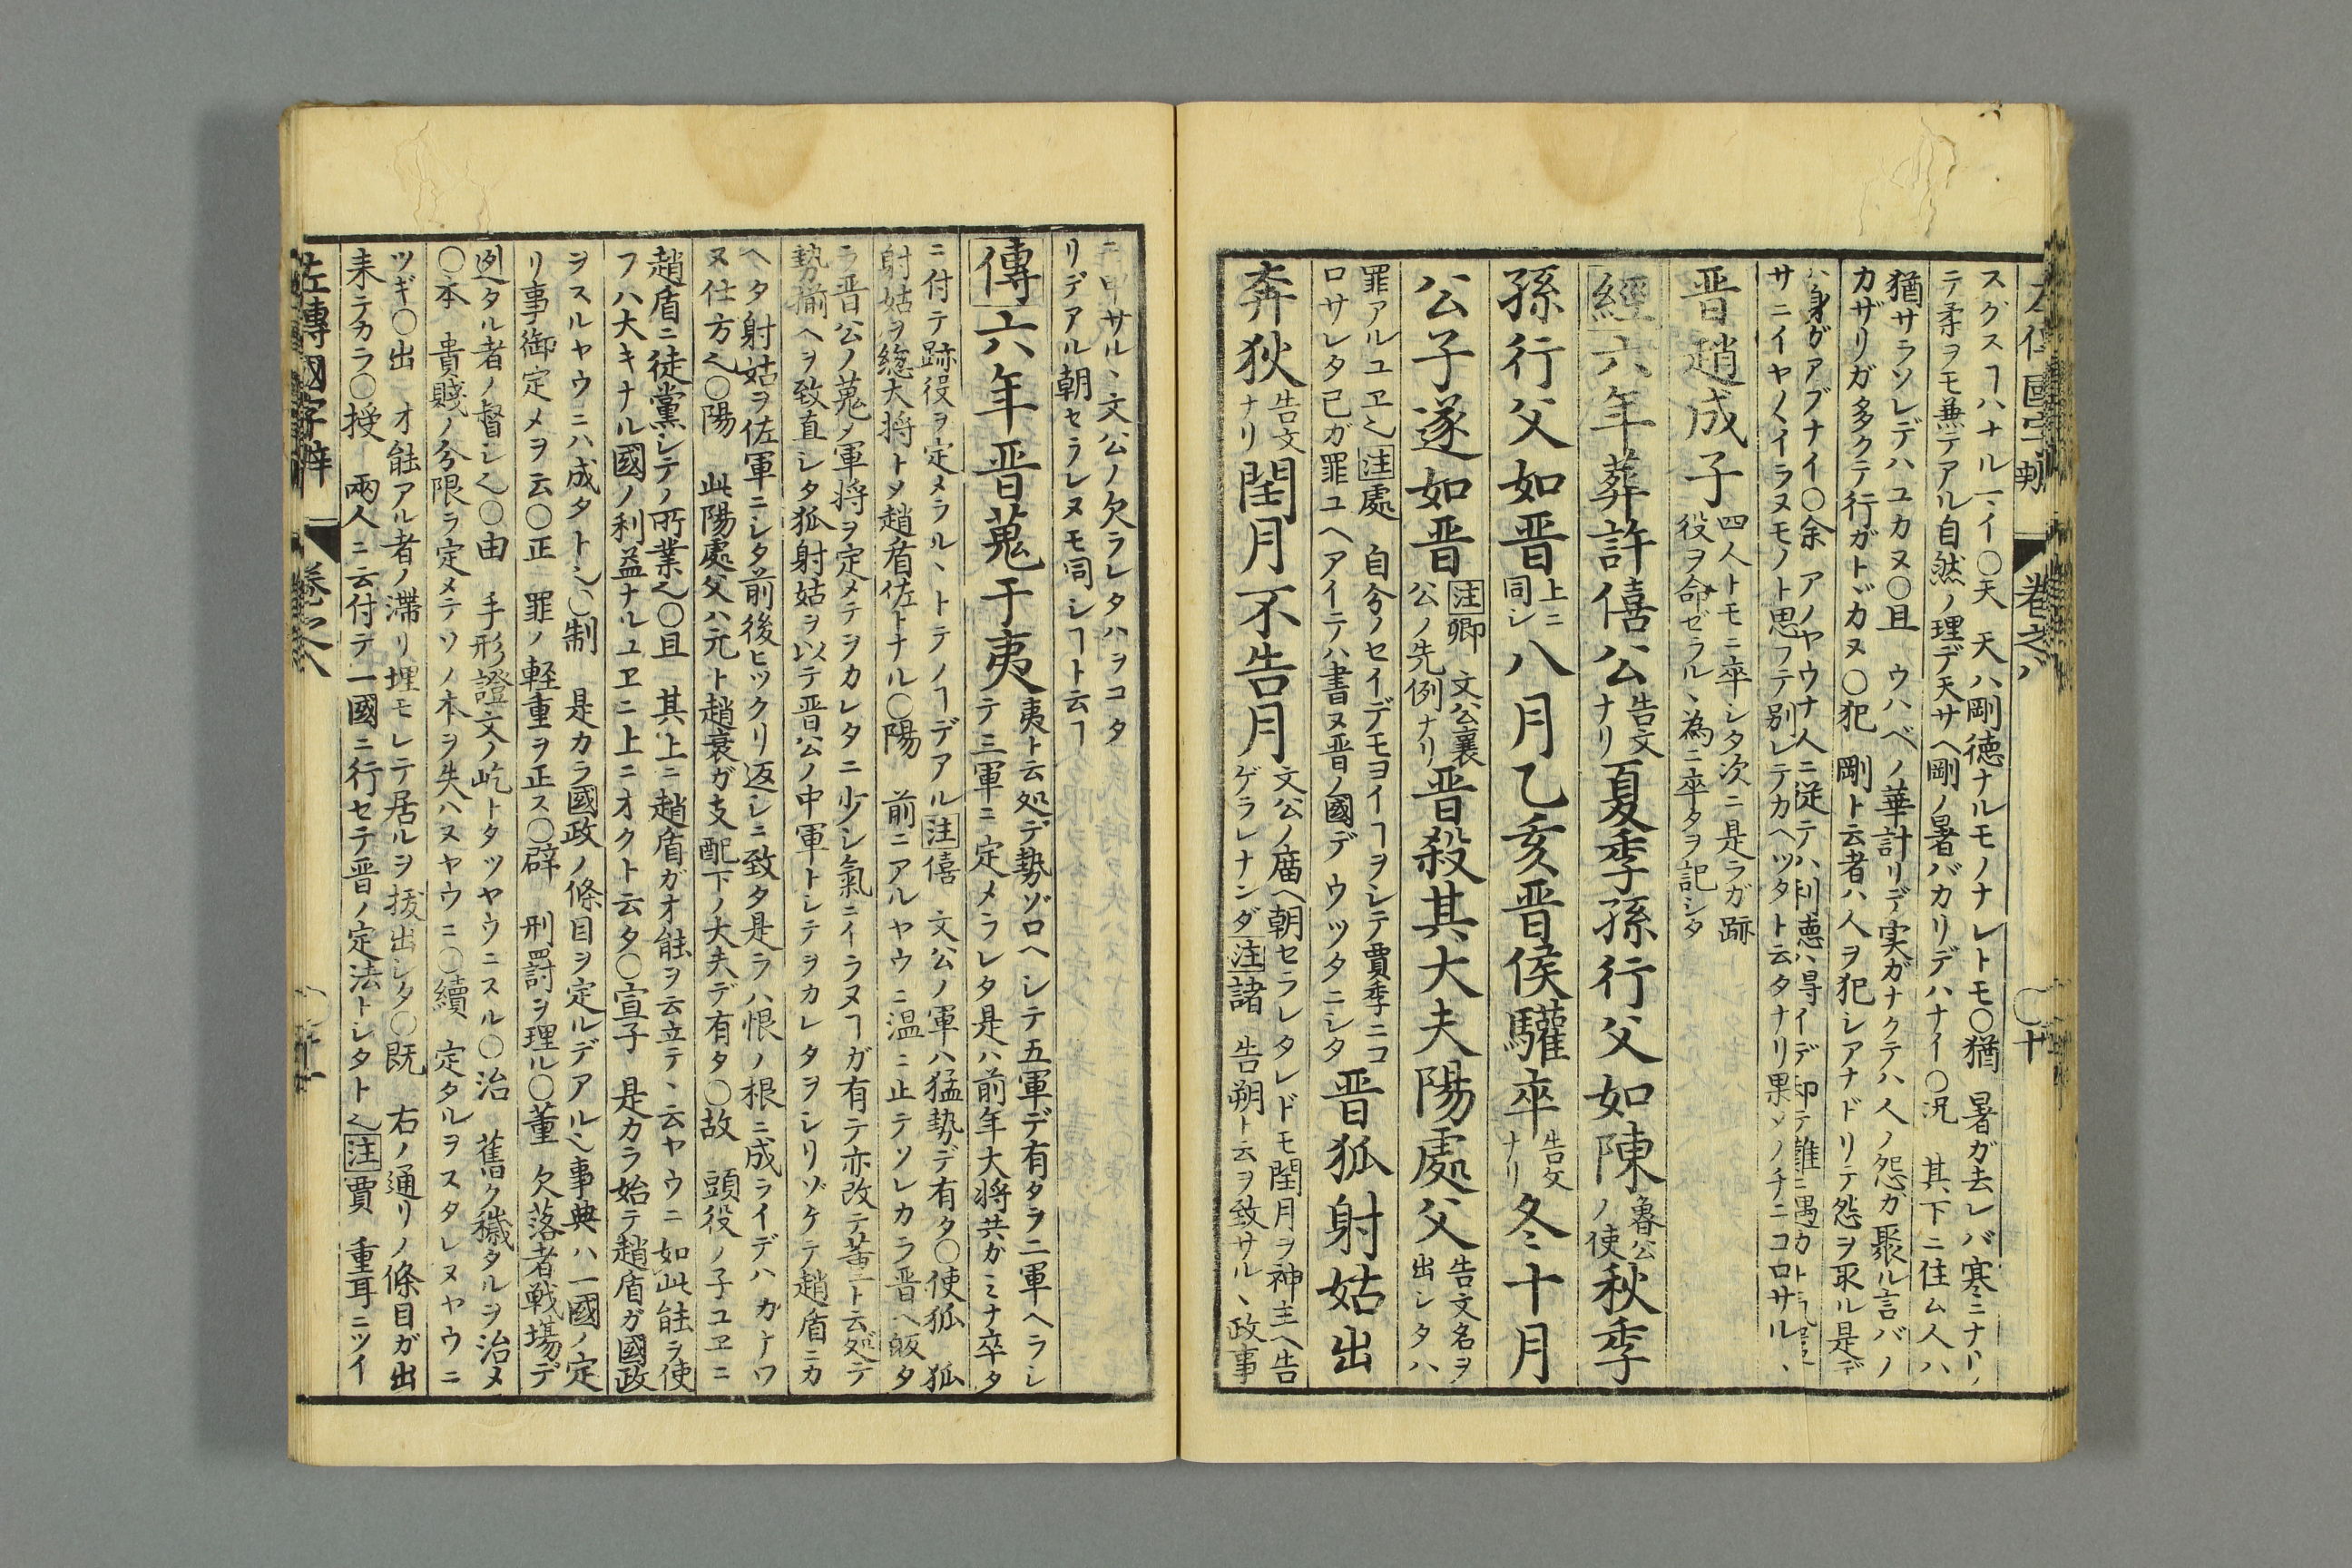 巻之八
十
スグスヿハナルマイ〇天 天ハ剛徳ナルモノナレトモ〇猶 暑ガ去レバ寒ニナリ
テ柔ヲモ兼テアル自然ノ理デ天サヘ剛ノ暑バカリデハナイ〇況 其下ニ住ム人ハ
猶サラソレデハユカヌ〇且 ウハベノ華計リデ実ガナクテハ人ノ怨ガ聚ル言バノ
カザリガ多クテ行ガトヾカヌ〇犯 剛ト云者ハ人ヲ犯シアナドリテ怨ヲ取ル是デ
ハ身ガアブナイ〇余 アノヤウナ人ニ従テハ利徳ハ得イデ却テ難ニ遇
サニイヤ〳〵イラヌモノト思フテ別レテカヘツタト云タナリ果シノチニコロサル丶
晋趙成子
四人トモニ卒シタ次ニ是ラガ跡
役ヲ命ゼラル丶為ニ卒タヲ記シタ
經六年葬許僖公
告文
ナリ
夏季孫行父如陳
魯公
ノ使
秋季
孫行父如晋
上ニ
同シ
八月乙亥晋侯驩卒
告文
ナリ
冬十月
公子遂如晋
注卿 文公襄
公ノ先例ナリ
晋殺其大夫陽處父
告文名ヲ
出シタハ
罪アルユヱ也注處 自分ノセイデモヨイヿヲシテ賈季ニコ
ロサレタ己ガ罪ユヘアイテハ書ヌ晋ノ國デウツタニシタ
晋狐射姑出
奔狄
告文
ナリ
閏月不告月
文公ノ廟ヘ朝セラレタレドモ閏月ヲ神主ヘ告
ゲラレナンダ注諸 告朔ト云ヲ致サル丶政事
ニ申サル丶文公ノ欠ラレタハヲコタ
リデアル朝セラレヌモ同シヿト云ヿ
傳六年晋蒐于夷
夷ト云処デ勢ゾロヘシテ五軍デ有タヲ二軍ヘラシ
テ三軍ニ定メラレタ是ハ前年大将共ガミナ卒タ
ニ付テ跡役ヲ定メラル丶トテノヿデアル注僖 文公ノ軍ハ猛勢デ有タ〇使狐 狐
射姑ヲ総大将トメ趙盾佐トナル〇陽 前ニアルヤウニ温ニ止テソレカラ晋ヘ皈タ
ラ晋公ノ蒐ノ軍将ヲ定メテヲカレタニ少シ氣ニイラヌヿガ有テ亦改テ董ト云処デ
勢揃ヘヲ致直シタ狐射姑ヲ以テ晋公ノ中軍トシテヲカレタヲシリゾケテ趙盾ニカ
ヘタ射姑ヲ佐軍ニシタ前後ヒツクリ返シニ致タ是ラハ恨ノ根ニ成ライデハカナワ
ヌ仕方也〇陽 此陽處父ハ元ト趙衰ガ支配下ノ大夫デ有タ〇故 頭役ノ子ユヱニ
趙盾ニ徒黨シテノ所業也〇且 其上ニ趙盾ガ才能ヲ云立テ丶云ヤウニ如此能ヲ使
フハ大キナル國ノ利益ナルユヱニ上ニオクト云タ〇宣子 是カラ始テ趙盾ガ國政
ヲスルヤウニハ成タト也〇制 是カラ國政ノ條目ヲ定ルデアル也事典ハ一國ノ定
リ事御定メヲ云〇正 罪ノ軽重ヲ正ス〇辟 刑罰ヲ理ル〇董 欠落者戦場デ
迯タル者ノ督シ也〇由 手形證文ノ屹トタツヤウニスル〇治 舊ク穢タルヲ治メ
〇本 貴賤ノ分限ラ定メテソノ本ヲ失ハヌヤウニ〇續 定タルヲスタレヌヤウニ
ツギ〇出 才能アル者ノ滞リ埋モレテ居ルヲ抜出シタ〇既 右ノ通リノ條目ガ出
来テカラ〇授 兩人ニ云付テ一國ニ行セテ晋ノ定法トシタト也注賈 重耳ニツイ
左傳國字辯 巻之八
十一